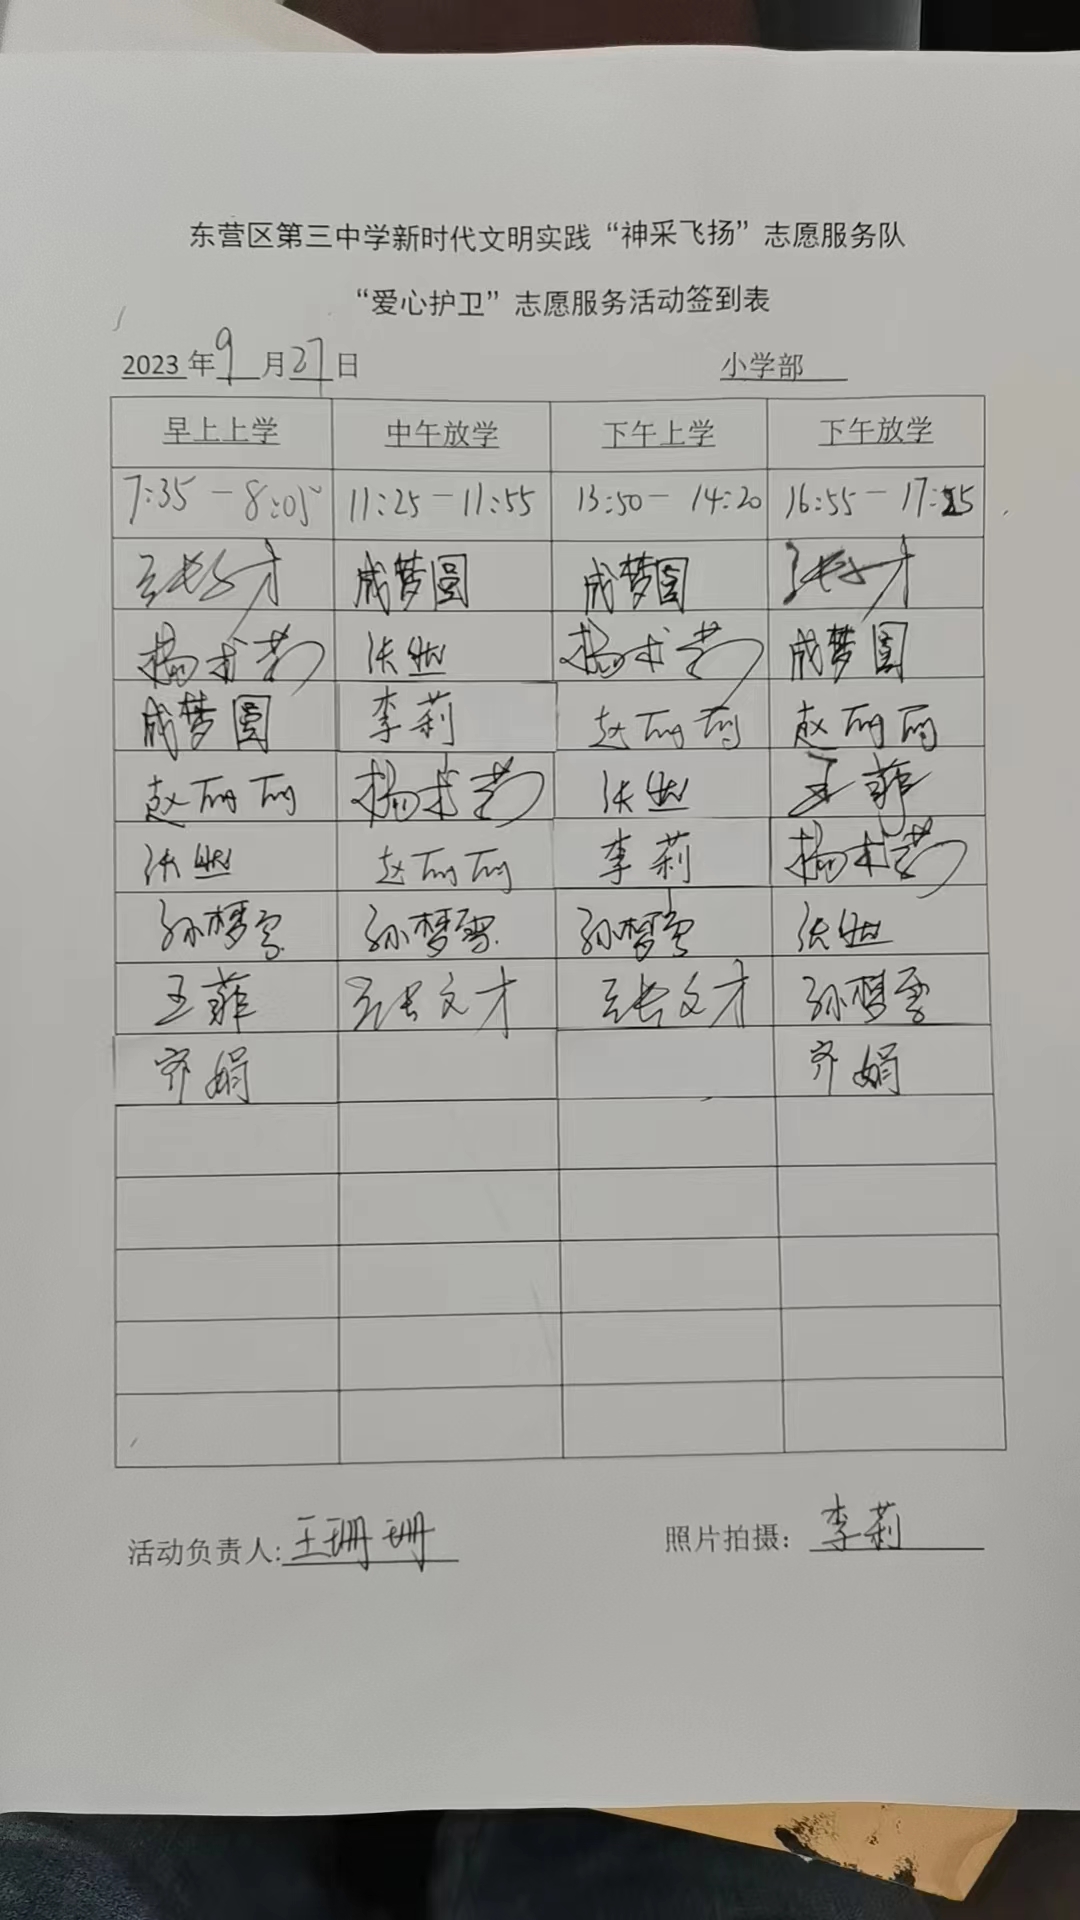 东营区第三中学新时代文明实践“神采飞扬”志愿服务队
“爱心护卫”志愿服务活动签到表
2023年9月27日 小学部
早上上学 中午放学 下午上学 下午放学
7:35-8:05 11:25-11:55 13:50-14:20 16:55-17:25
张文才 成梦圆 成梦圆 张文才
杨术芳 杨术芳 成梦圆
成梦圆 李莉 赵丽丽 赵丽丽
赵丽丽 杨术芳 王菲
赵丽丽 李莉 杨术芳
孙梦雪 孙梦雪 孙梦雪
王菲 张文才 张文才 孙梦雪
齐娟 齐娟
活动负责人:王珊珊 照片拍摄:李莉